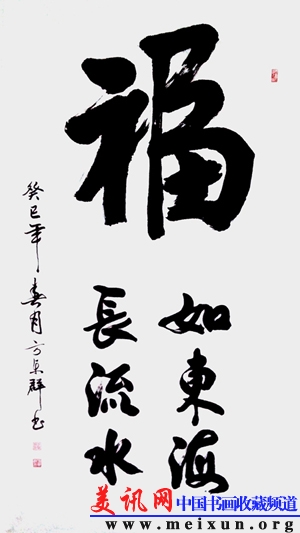 福
如東海
長流水
癸巳年春月方群书
美讯网 中国书画收藏频道
www.meixun.org